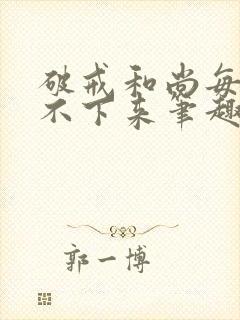 破戒和尚每
不下来笔趣
郭一博